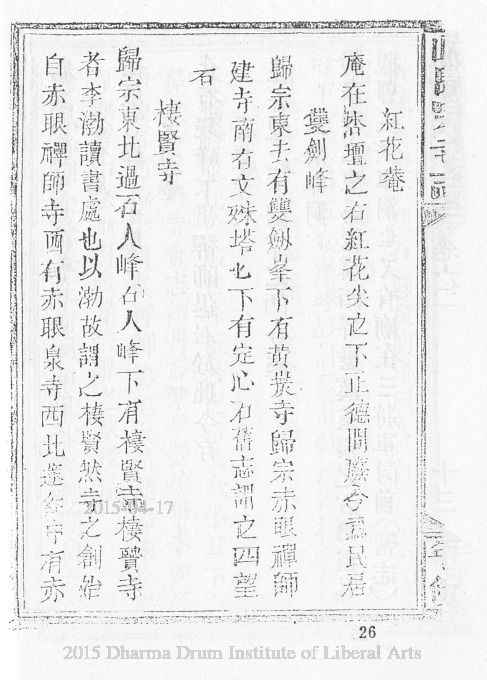 紅花菴
庵在㳫壇之右紅花尖之下正德間廢今爲民居
雙劍峰
歸宗東去有雙劔峯下有黃巖寺歸宗赤眼禪師
建寺南有文殊塔也下有定心石舊志謂之四望
石
棲賢寺
歸宗東北過石人峰石人峰下有棲賢寺棲賢寺
者李渤讀書處也以渤故謂之棲賢然寺之創始
自赤眼禪師寺西有赤眼泉寺西北蓬 中有赤
26
2015-04-17
2015 Dharma Drum Institute of Liberal Arts